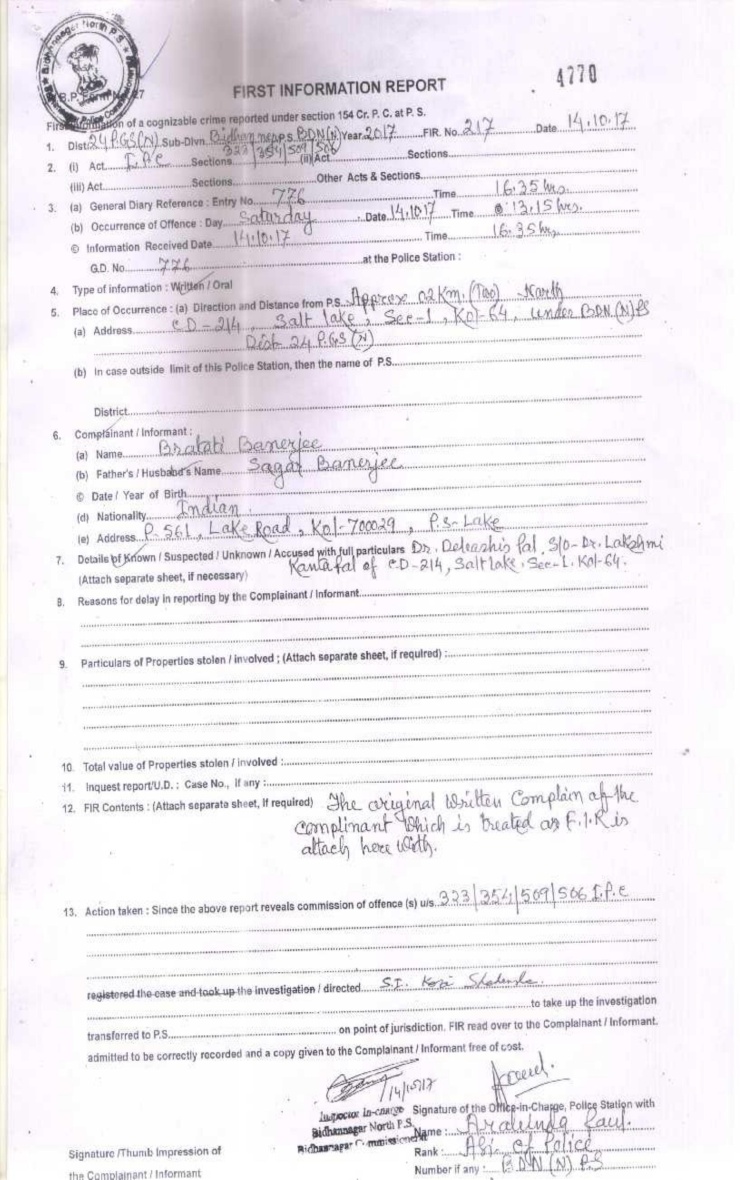 Bidhannagar North P.S.
4770
FIRST INFORMATION REPORT
First Information of a cognizable crime reported under section 154 Cr. P. C. at P. S.
1. Dist. 24 P.GS (N) Sub-Divn. Bidhan nagar P.S. BDN (N) Year 2017 FIR. No. 217 Date 14.10.17
2. (i) Act I.P.C Sections 323/354/509/506 (ii) Act Sections
(iii) Act Sections Other Acts & Sections
3. (a) General Diary Reference : Entry No. 776 Time 16.35 hrs.
(b) Occurrence of Offence : Day Saturday Date 14.10.17 Time 13.15 hrs.
© Information Received Date 14.10.17 Time 16.35 hrs.
G.D. No. 776 at the Police Station :
4. Type of information : Written / Oral
5. Place of Occurrence : (a) Direction and Distance from P.S. Approx 02 Km. (Two) North
(a) Address CD-214, Salt lake, Sec-1, Kol-64, under BDN (N) PS
Dist 24 P.GS (N)
(b) In case outside limit of this Police Station, then the name of P.S.
District
6. Complainant / Informant :
(a) Name Bratati Banerjee
(b) Father's / Husband's Name Sagar Banerjee
© Date / Year of Birth
(d) Nationality Indian
(e) Address P-561, Lake Road, Kol-700029, P.S-Lake
7. Details of Known / Suspected / Unknown / Accused with full particulars Dr. Debashis Pal, S/O-Dr. Lakshmi
(Attach separate sheet, if necessary) Kanta Pal of CD-214, Salt lake, Sec-1. Kol-64.
8. Reasons for delay in reporting by the Complainant / Informant
9. Particulars of Properties stolen / involved ; (Attach separate sheet, if required) :
10. Total value of Properties stolen / involved :
11. Inquest report/U.D. : Case No., if any :
12. FIR Contents : (Attach separate sheet, if required) The original Written Complain of the
complinant Which is treated as F.I.R is
attach here with.
13. Action taken : Since the above report reveals commission of offence (s) u/s. 323/354/509/506 I.P.C
registered the case and took up the investigation / directed S.I.
to take up the investigation
transferred to P.S. on point of jurisdiction. FIR read over to the Complainant / Informant.
admitted to be correctly recorded and a copy given to the Complainant / Informant free of cost.
14/10/17
Inspector In-charge Signature of the Office-in-Charge, Police Station with
Bidhannagar North P.S. Name :
Bidhannagar Commissionerate Rank : ASI. of Police
Signature /Thumb Impression of
the Complainant / Informant Number if any : BDN (N) P.S